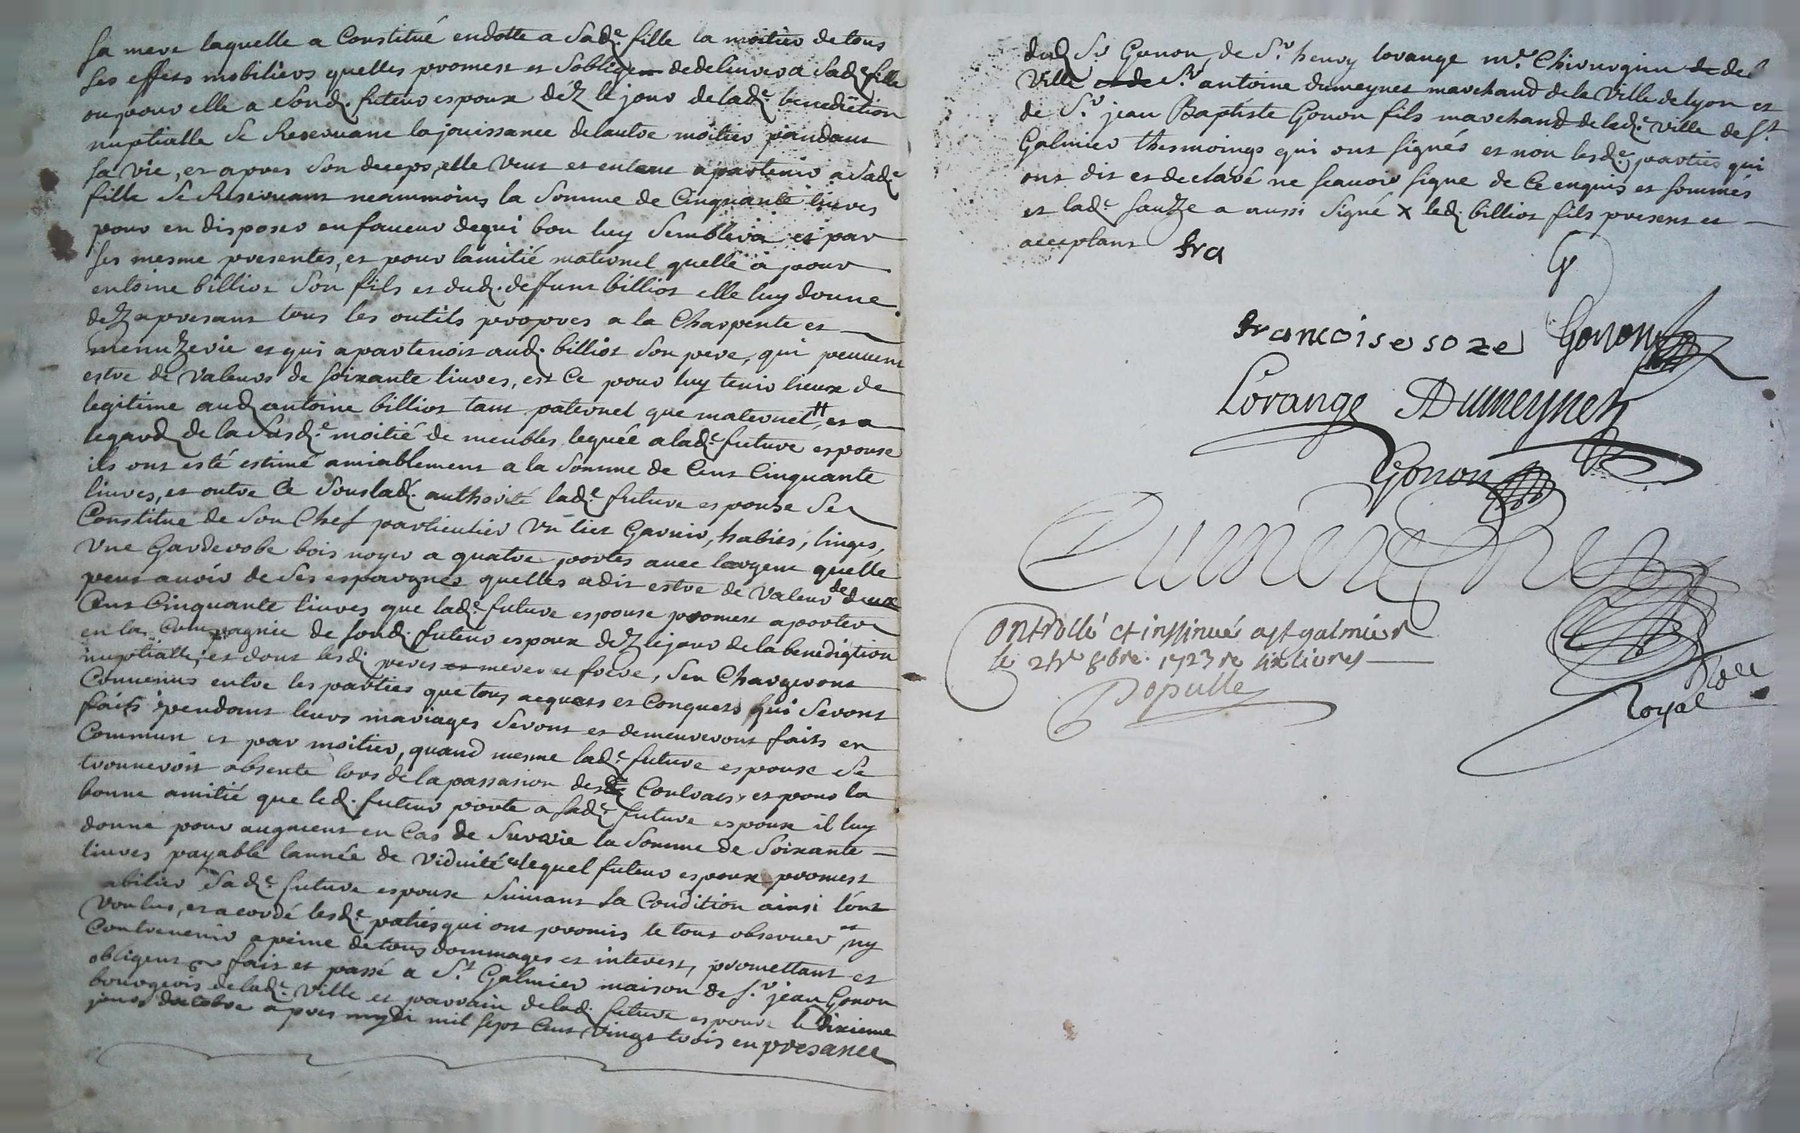 sa mere laquelle a Constitué endotte a Sade fille la moitier de tous
ses effets mobiliers quelles promest et Soblige de delivrer a Sade fille
ou pour elle a Sond. futeur espoux dez le jour de lade benediction
nuptialle Se Reservant la jouissance de lautre moitier pandant
sa vie, et apres Son deceps, elle veut et entant apartenir a Sade
fille Se Reservant neammoins la Somme de Cinquante livres
pour en disposer en faveur de qui bon luy Semblera et par
ses mesme presentes, et pour lamitié maternel quelle a pour
entoine billiot Son fils et dud. deffunt billiot elle luy donne
dez apresant tous les outils propres a la Charpente et
menuzerie et qui apartenoit aud. billiot Son pere, qui peuvent
estre de valeurs de soixante livres, est Ce pour luy tenir lieux de
legitime aud antoine billiot tant paternel que maternel, et a
legard de la Susde moitié de meubles leguée a lade future espouse
ils ont esté estimé amiablement a la Somme de Cent Cinquante
livres, et outre Ce Souslad. authorité lade future espouse Se
Constitue de Son Chef particulier un lict Garnir, habits, linges,
une Garderobe bois noyer a quatre portes avec largent quelle
peut avoir de Ses espargnes quelles a dit estre de valeur de deux
Cent Cinquante livres que lade future espouse promest aporter
en la Compagnie de sond. futeur espoux dez le jour de la benediqtion
nuptialle, et dont lesd peres et meres et frere, Sen Chargeront
Convenus entre les parties que tous acquets et Conquets qui Seront
faits pendant leurs mariages Seront et demeureront faits en
Commun et par moitier, quand mesme lade future espouse Se
trouveroit absente lors de la passasion desd Contrats, et pour la
bonne amitié que led. futeur porte a sade future espouse il luy
donne pour augment en Cas de Survie la Somme de Soixante
livres payable lannée de viduité lequel futeur espoux promest
abilier Sade future espouse Suivant Sa Condition ainsi lont
voulus, et acordé lesde paties qui ont promis le tout observer et ny
Contrevenir apeine de tous dommages et interest, promettant et
obligent fait et passé a St. Galmier maison de Sr. jean Gonon
bourgeois delade. ville et parrain delad. future espouse le dixieme
jour doctobre apres mydi mil sept Cent vingt trois en presance
dud Sr Gonon, de Sr henry lorange me. Chirurgien de de
ville et de Sr antoine dumeynet marchand de la ville de lyon et
de Sr. jean Baptiste Gonon fils marchand delade. ville de St
Galmier thesmoings qui ont signés et non lesde. parties qui
ont dit et declaré ne scauoir signe de Ce enquis et sommés
et lade sauze a aussi signé X led. billiot fils present et
acceptant fra
G
francoise soze Gonon
Lorange ADumeynet
Gonon
Controllé et insinué a st galmier
le 8bre. 1723 re six livres
Populle
Nore
Royal